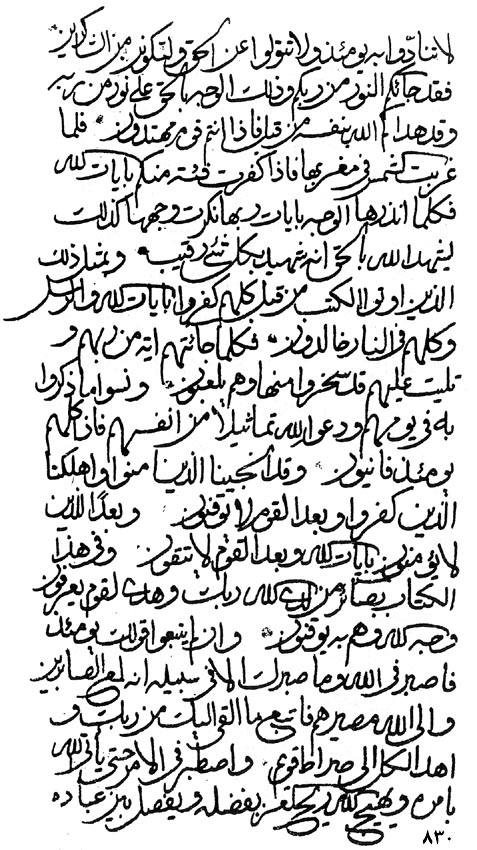 لا تنادوا به يومئذ ولا تتولوا عن الحق ولتكونن من الذاكرين
فقد جائكم النور من ربكم وذلك الوجه بالحق على نور من ربه
وقد هداكم الله بنفسه من قبل فاذا انتم في مهتدون فلما
غربت الشمس في مغربها فاذا كفرت فئة منكم بايات الله
فكلما انذرها الوجه بايات ربها نكرت وجهها كذلك
ليشهد الله بالحق انه شهيد بكل شئ رقيب وبمثل ذلك
الذين اوتوا الكتب من قبل كلهم كفروا بايات الله والرسل
وكلهم في النار خالدون فكلما جائتهم اية من ربهم و
تليت عليهم قد سخروا منها وهم يلعبون ونسوا ما ذكروا
به في يومهم ودعوا لله تماثيلا من انفسهم فاذا كلهم
يومئذ فانيون وقد انجينا الذين امنوا واهلكنا
الذين كفروا وبعدا لقوم لا يوقنون وبعدا للذين
لا يؤمنون بايات الله وبعدا لقوم لا يتقون وفي هذا
الكتاب بصائر من لدى الله ربك وهدى لقوم يعرفون
وجه الله وهم به يوقنون وان اتبعوا قولك يومئذ
فاصبر في الله وما صبرك الا في سبيله انه لمع الصابرين
والى الله مصيرهم فاتبع ما القى اليك من ربك و
اهد الكل الى صراط قويم واصطبر في الامر حتى ياتي الله
بامره ويهيج الله ريح بفضله ويفصل بين عباده
٨٣٠